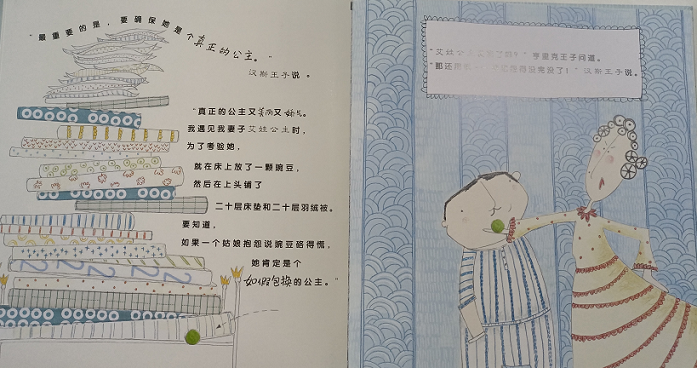 "最重要的是，要确保她是个真正的公主。"
汉斯王子说。
"真正的公主又
我遇见我妻子艾娃公主时，
为了考验她，
就在床上放了一颗豌豆，
然后在上头铺了
二十层床垫和二十层羽绒被。
要知道，
如果一个姑娘抱怨说豌豆硌得慌，
她肯定是个
如假包换的公主。"
"艾娃公主 亨里克王子问道。
"那还用 汉斯王子说。